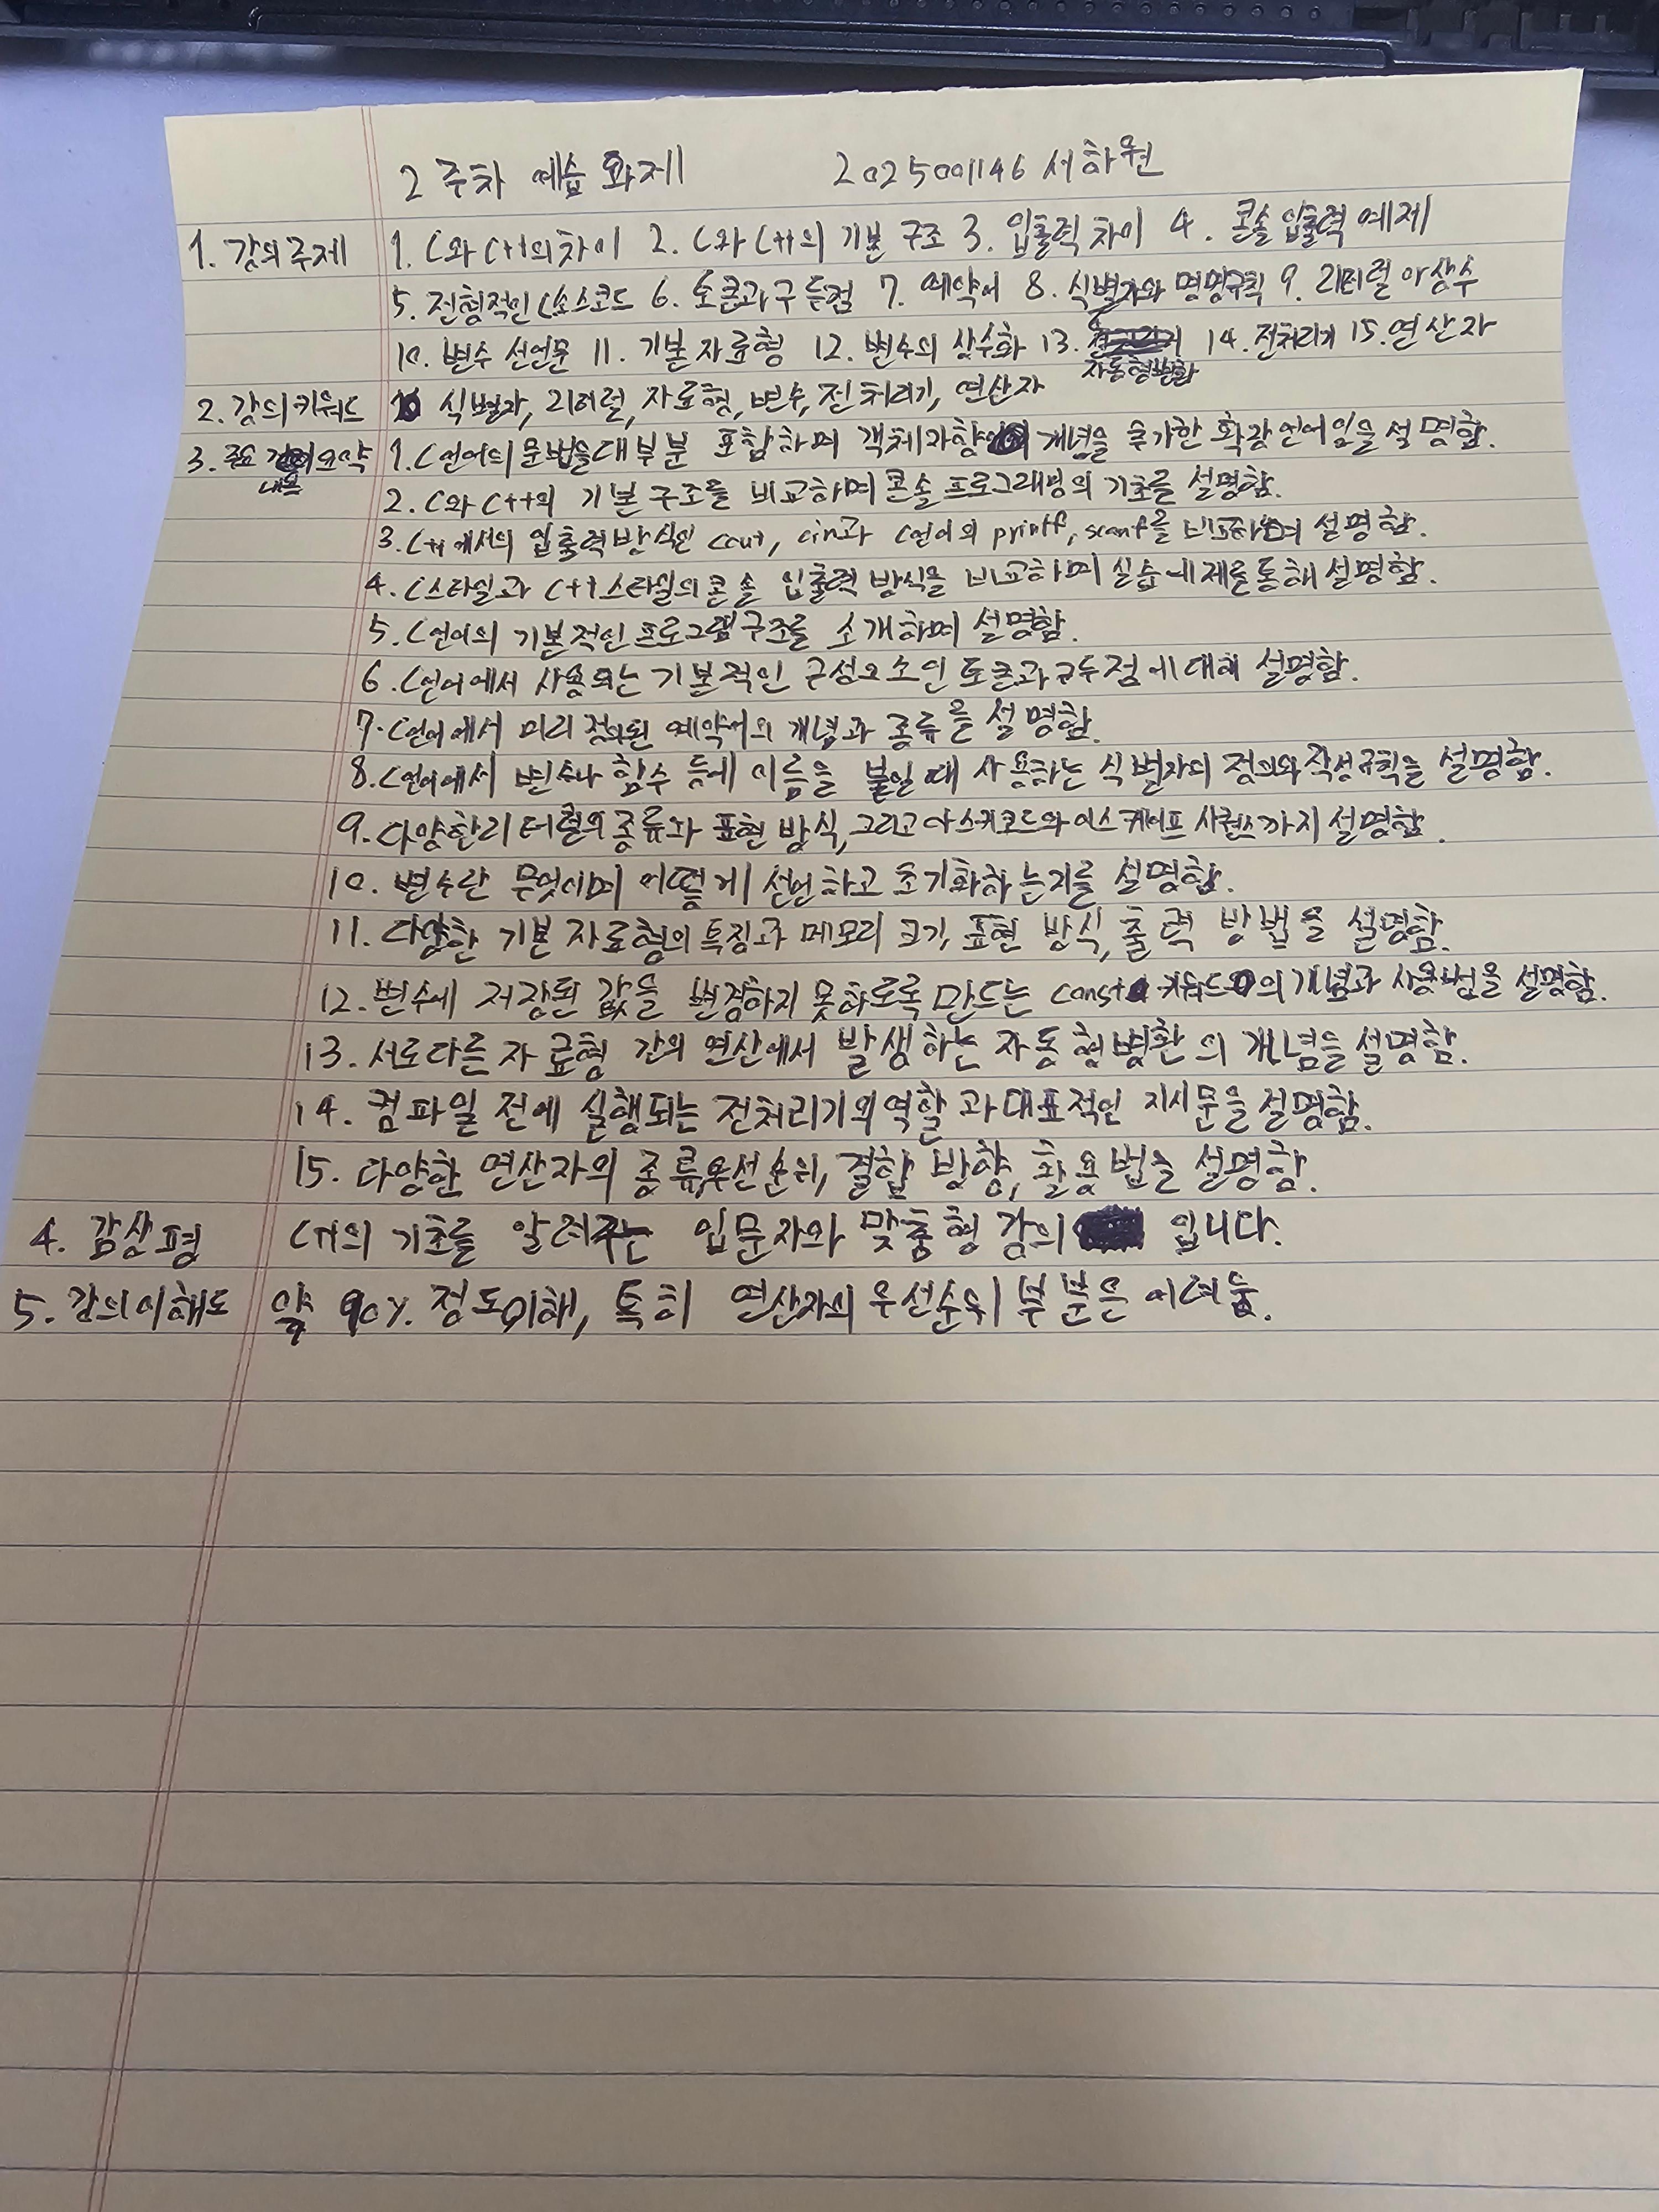 2주차 예습 과제 2025001146 서하원
1. 강의주제 1. C와 C++의 차이 2. C와 C++의 기본 구조 3. 입출력 차이 4. 콘솔 입출력 예제
5. 전형적인 C소스코드 6. 토큰과 구두점 7. 예약어 8. 식별자와 명명규칙 9. 리터럴 아 상수
10. 변수 선언문 11. 기본 자료형 12. 변수의 상수화 13. 자동형변환 14. 전처리기 15. 연산자
2. 강의키워드 식별자, 리터럴, 자료형, 변수, 전처리기, 연산자
3. 주요 내용 요약 1. C언어의 문법을 대부분 포함하며 객체지향 개념을 추가한 확장 언어임을 설명함.
2. C와 C++의 기본 구조를 비교하며 콘솔 프로그래밍의 기초를 설명함.
3. C++에서의 입출력방식인 cout, cin과 C언어의 printf, scanf를 비교하며 설명함.
4. C스타일과 C++스타일의 콘솔 입출력 방식을 비교하며 실습 예제를 통해 설명함.
5. C언어의 기본적인 프로그램 구조를 소개하며 설명함.
6. C언어에서 사용되는 기본적인 구성요소인 토큰과 구두점에 대해 설명함.
7. C언어에서 미리 정의된 예약어의 개념과 종류를 설명함.
8. C언어에서 변수나 함수 등에 이름을 붙일 때 사용하는 식별자의 정의와 작성규칙을 설명함.
9. 다양한 리터럴의 종류와 표현 방식, 그리고 아스키코드와 이스케이프 시퀀스까지 설명함.
10. 변수란 무엇이며 어떻게 선언하고 초기화하는지를 설명함.
11. 다양한 기본 자료형의 특징과 메모리 크기, 표현 방식, 출력 방법을 설명함.
12. 변수에 저장된 값을 변경하지 못하도록 만드는 const 키워드의 개념과 사용법을 설명함.
13. 서로다른 자료형 간의 연산에서 발생하는 자동 형변환의 개념을 설명함.
14. 컴파일 전에 실행되는 전처리기의 역할과 대표적인 지시문을 설명함.
15. 다양한 연산자의 종류, 우선순위, 결합 방향, 활용법을 설명함.
4. 감상평 C++의 기초를 알려주는 입문자와 맞춤형 강의 입니다.
5. 강의이해도 약 90% 정도이해, 특히 연산자의 우선순위 부분은 어려움.